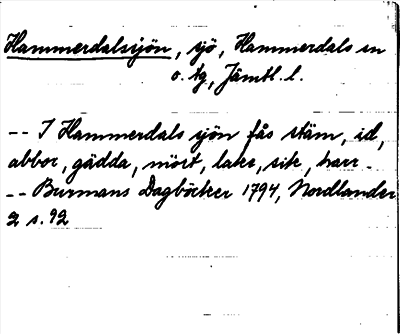 Hammerdalssjön, sjö, Hammerdals sn
o. tg, Jämtl. l.
-- I Hammerdals sjön fås stäm, id,
abbor, gädda, mört, lake, sik, harr -
-- Burmans Dagböcker 1794, Nordlander
2 s. 92